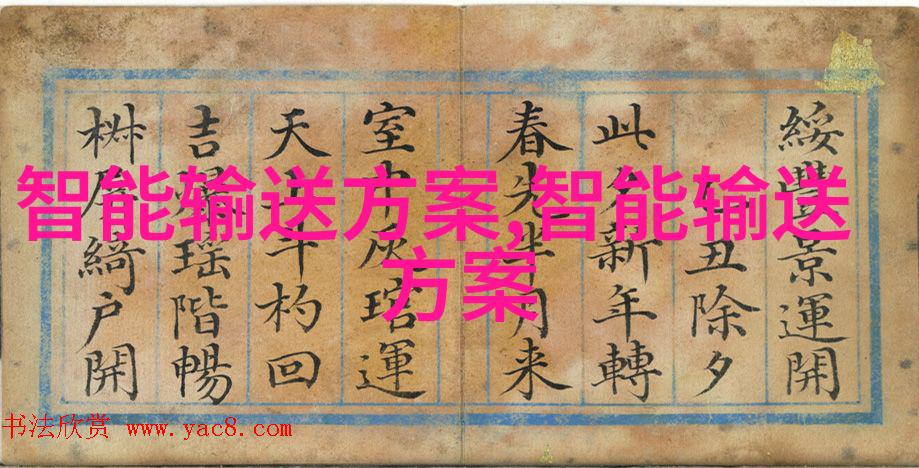 綏豐景運開
丑除夕
此新年轉
春先半月来
室中灰琯運
天上斗杓回
吉瑶階暢
綺户開
智能输送方案,智能输送
方案
书法欣赏 www.yac8.com